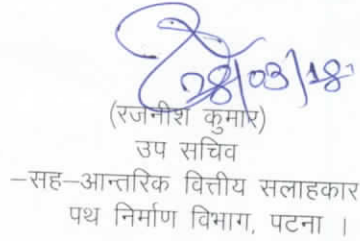 28/03/18
(रजनीश कुमार)
उप सचिव
–सह–आन्तरिक वित्तीय सलाहकार
पथ निर्माण विभाग, पटना ।